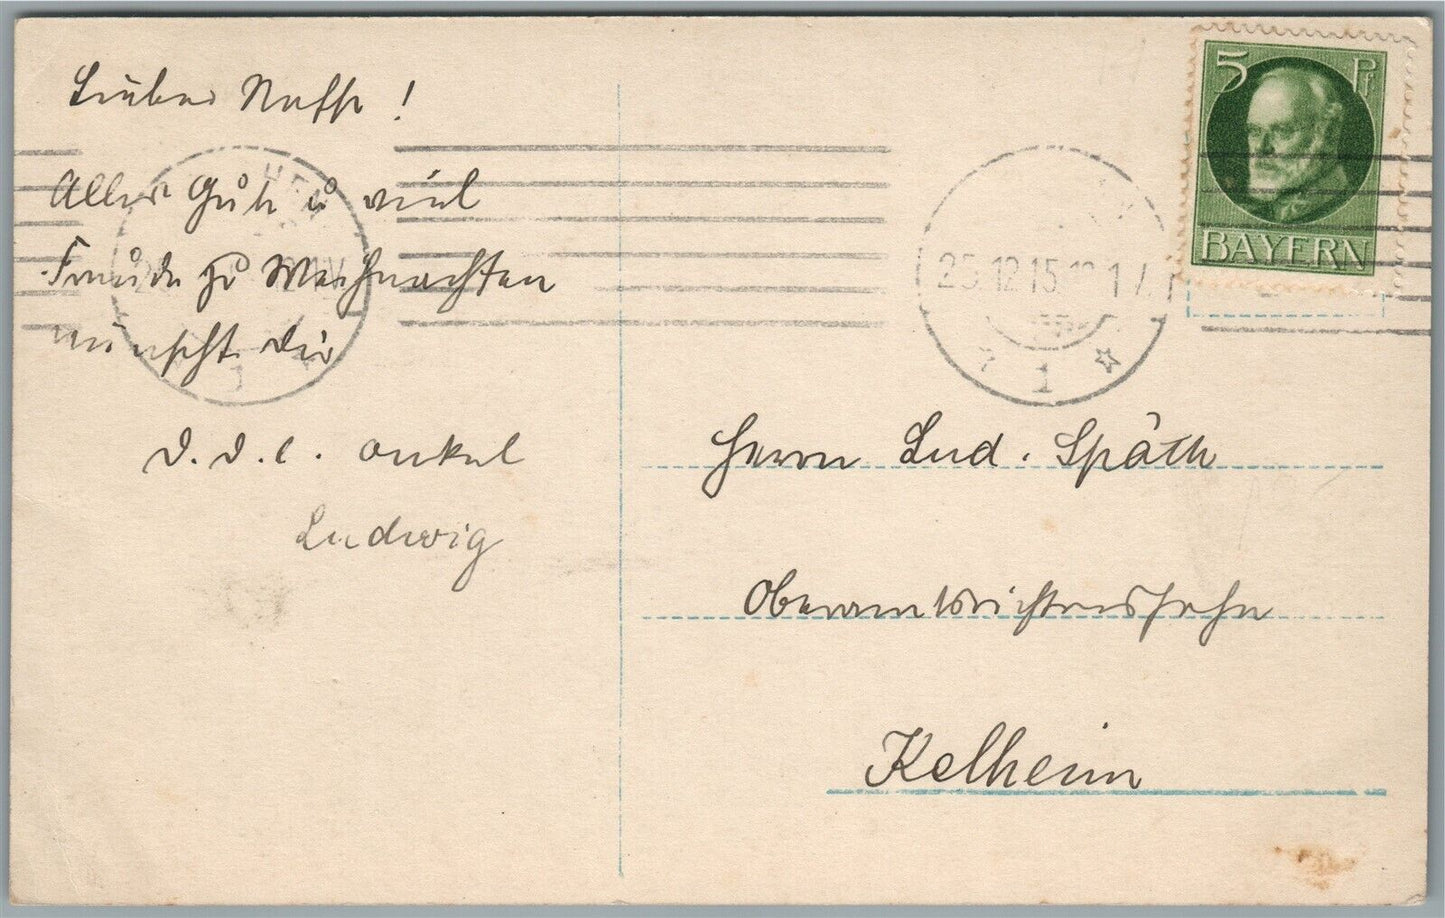 Lieber Neffe!
Alles Gute u. viel
Freude zu Weihnachten
wünscht Dir
D. d. l. Onkel
Ludwig
5 Pf
BAYERN
25.12.15.
1
1
Herrn Lud. Späth
Oberamtsrichterssohn
Kelheim